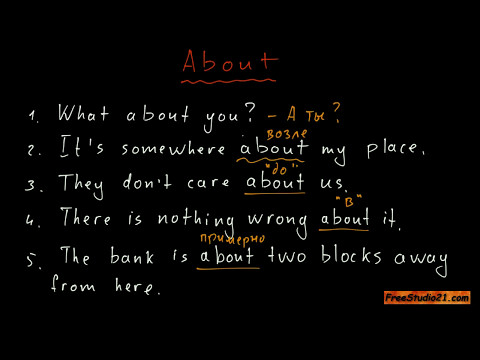 About
1. What about you? - А ты?
возле
2. It's somewhere about my place.
"до"
3. They don't care about us.
"в"
4. There is nothing wrong about it.
примерно
5. The bank is about two blocks away
from here.
FreeStudio21.com